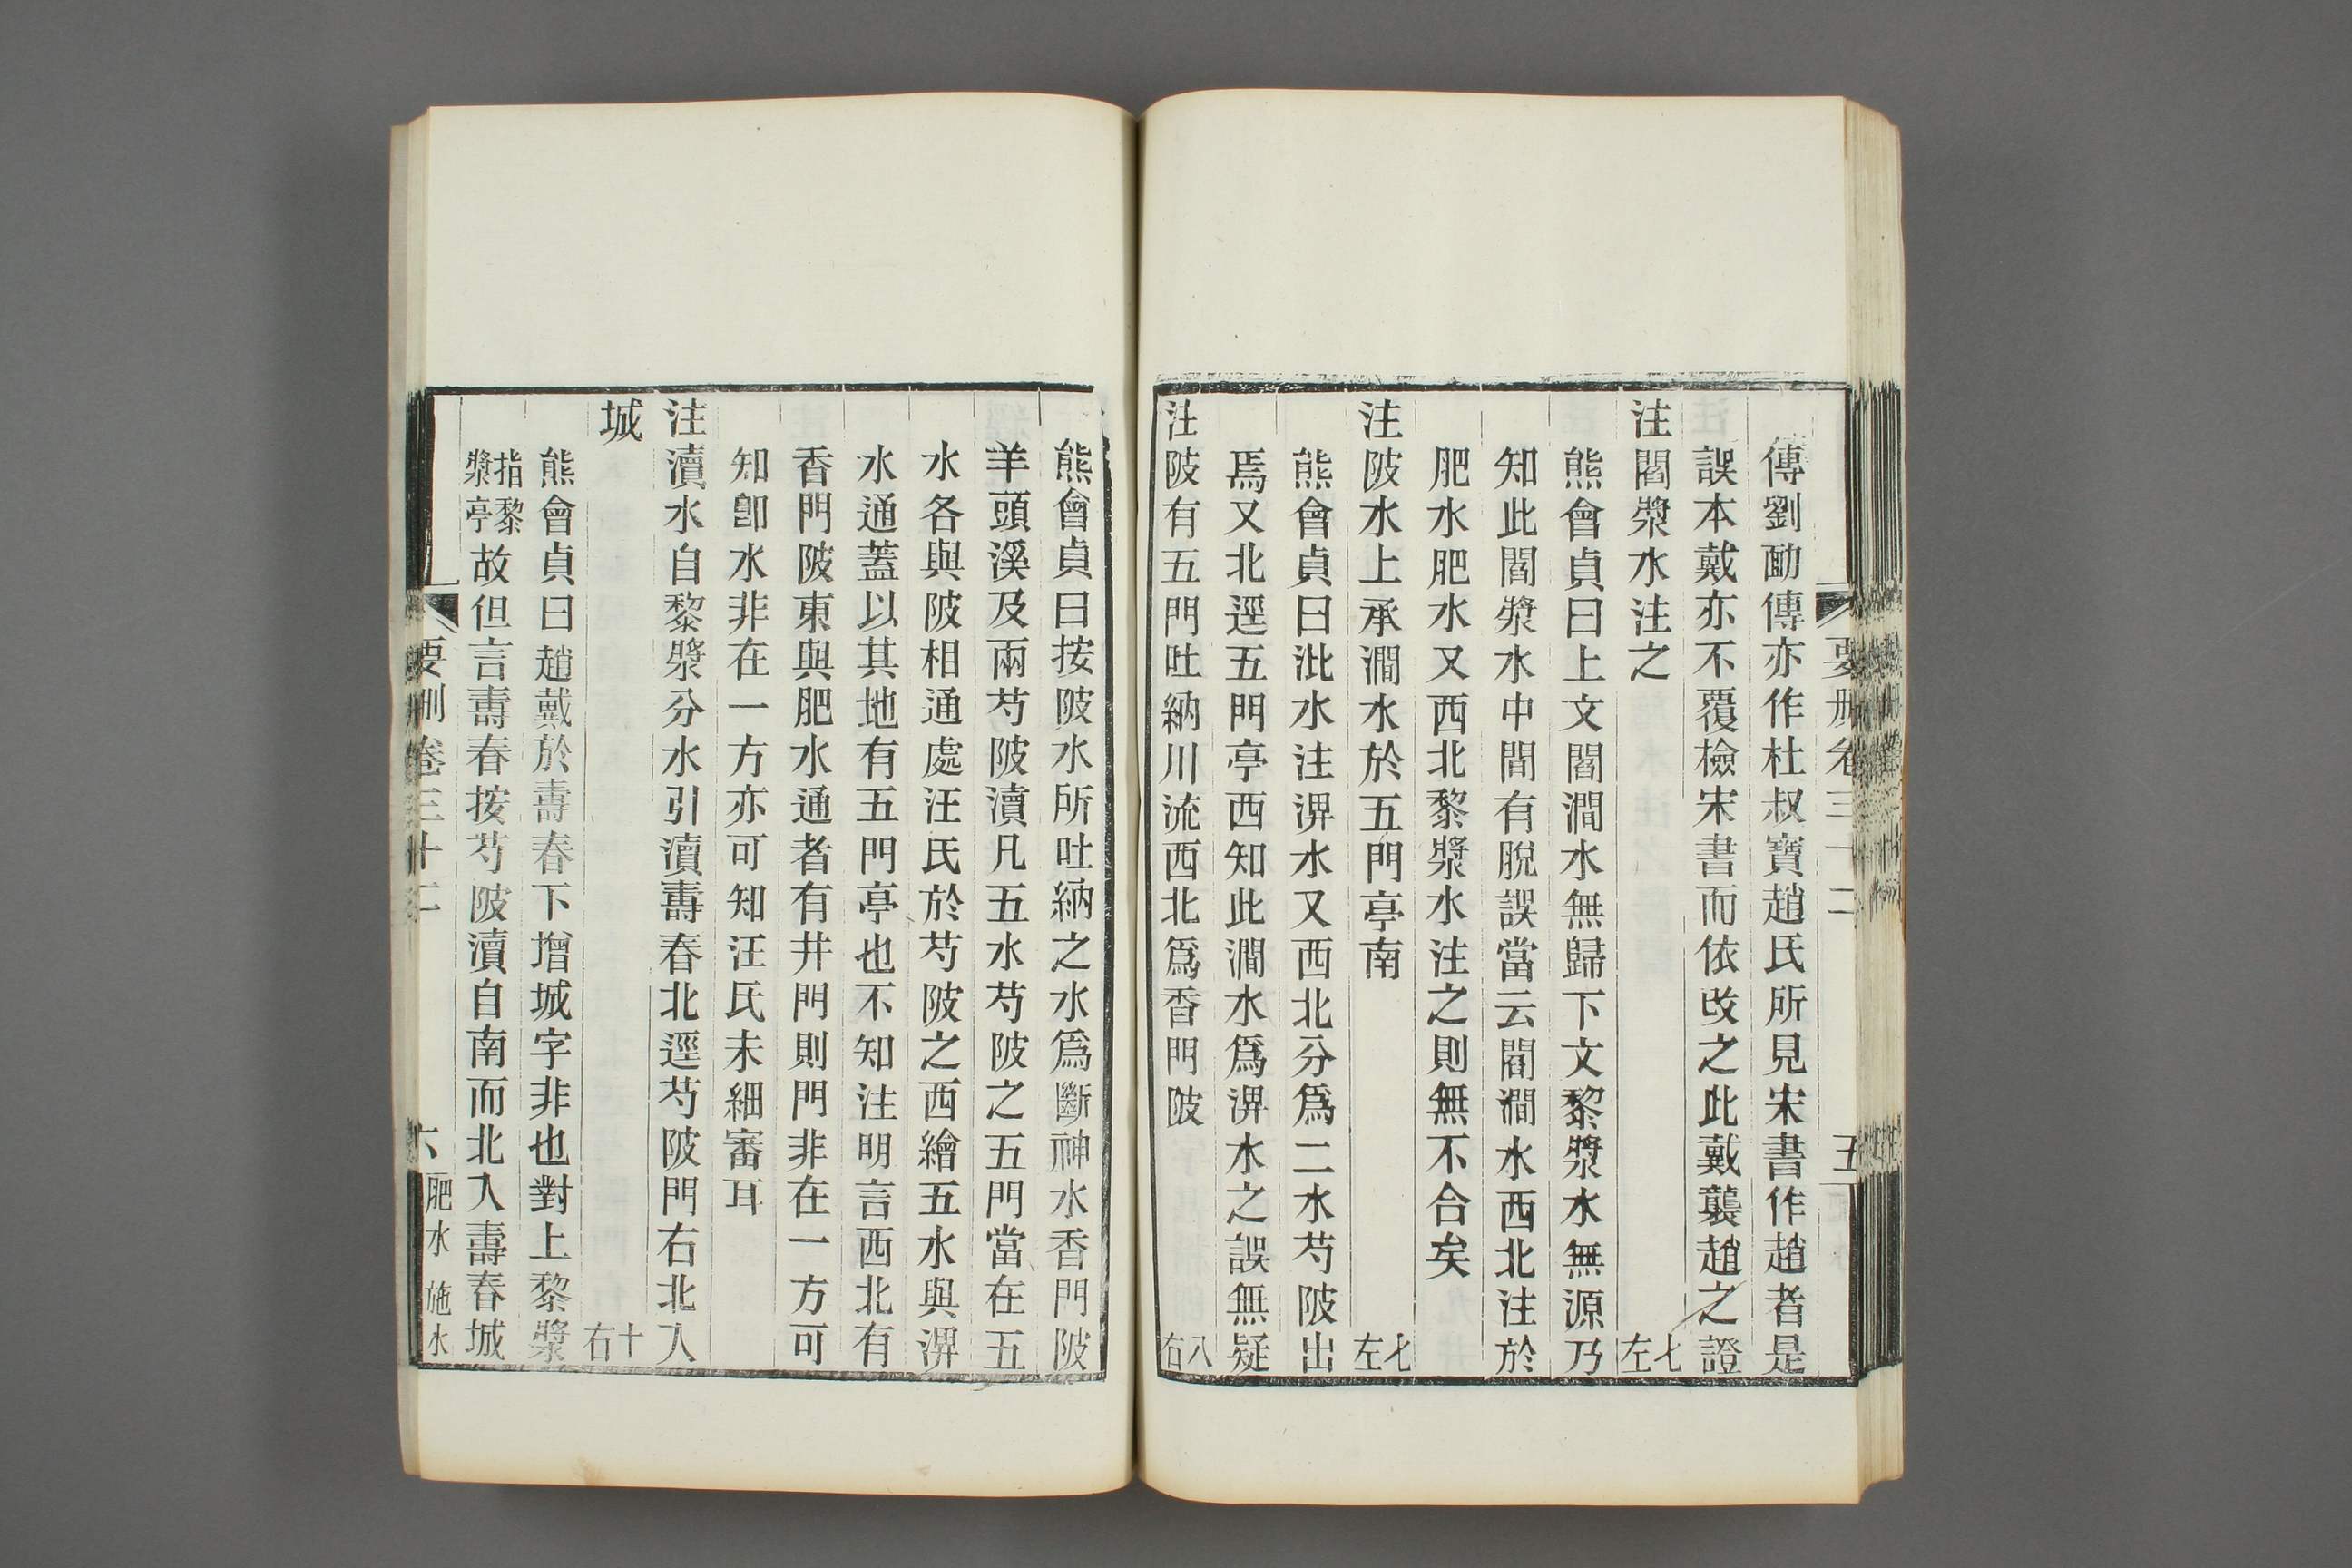 傳劉勔傳亦作杜叔寶趙氏所見宋書作趙者是
誤本戴亦不覆檢宋書而依改之此戴襲趙之證
注閻漿水注之 七左
熊會貞曰上文閻澗水無歸下文黎漿水無源乃
知此閻漿水中間有脫誤當云閻澗水西北注於
肥水肥水又西北黎漿水注之則無不合矣
注陂水上承澗水於五門亭南 七左
熊會貞曰沘水注淠水又西北分爲二水芍陂出
焉又北逕五門亭西知此澗水爲淠水之誤無疑
注陂有五門吐納川流西北爲香門陂 八右
熊會貞曰按陂水所吐納之水爲斷神水香門陂
羊頭溪及兩芍陂瀆凡五水芍陂之五門當在五
水各與陂相通處汪氏於芍陂之西繪五水與淠
水通蓋以其地有五門亭也不知注明言西北有
香門陂東與肥水通者有井門則門非在一方可
知卽水非在一方亦可知汪氏未細審耳
注瀆水自黎漿分水引瀆壽春北逕芍陂門右北入
城 十右
熊會貞曰趙戴於壽春下增城字非也對上黎漿
指黎漿亭故但言壽春按芍陂瀆自南而北入壽春城
要刪卷三十二 五
要刪卷三十二 六 肥水 施水